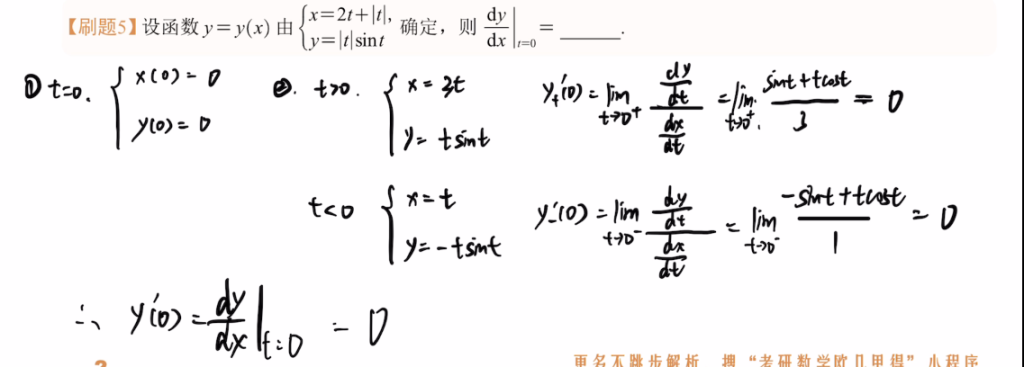 【刷题5】设函数 y=y(x) 由 {x=2t+|t|, y=|t|sint 确定，则 dy/dx|t=0 = ______.
① t=0. { x(0)=0 y(0)=0
②. t>0. { x=3t y=tsint y₊'(0)=lim t→0⁺ (dy/dt)/(dx/dt) =lim t→0⁺. (sint+tcost)/3 = 0
t<0 { x=t y=-tsint y₋'(0)=lim t→0⁻ (dy/dt)/(dx/dt) = lim t→0⁻ (-sint+tcost)/1 = 0
∴ y'(0)=dy/dx|t=0 = 0
更名不跳步解析 搜“考研数学欧几里得”小程序